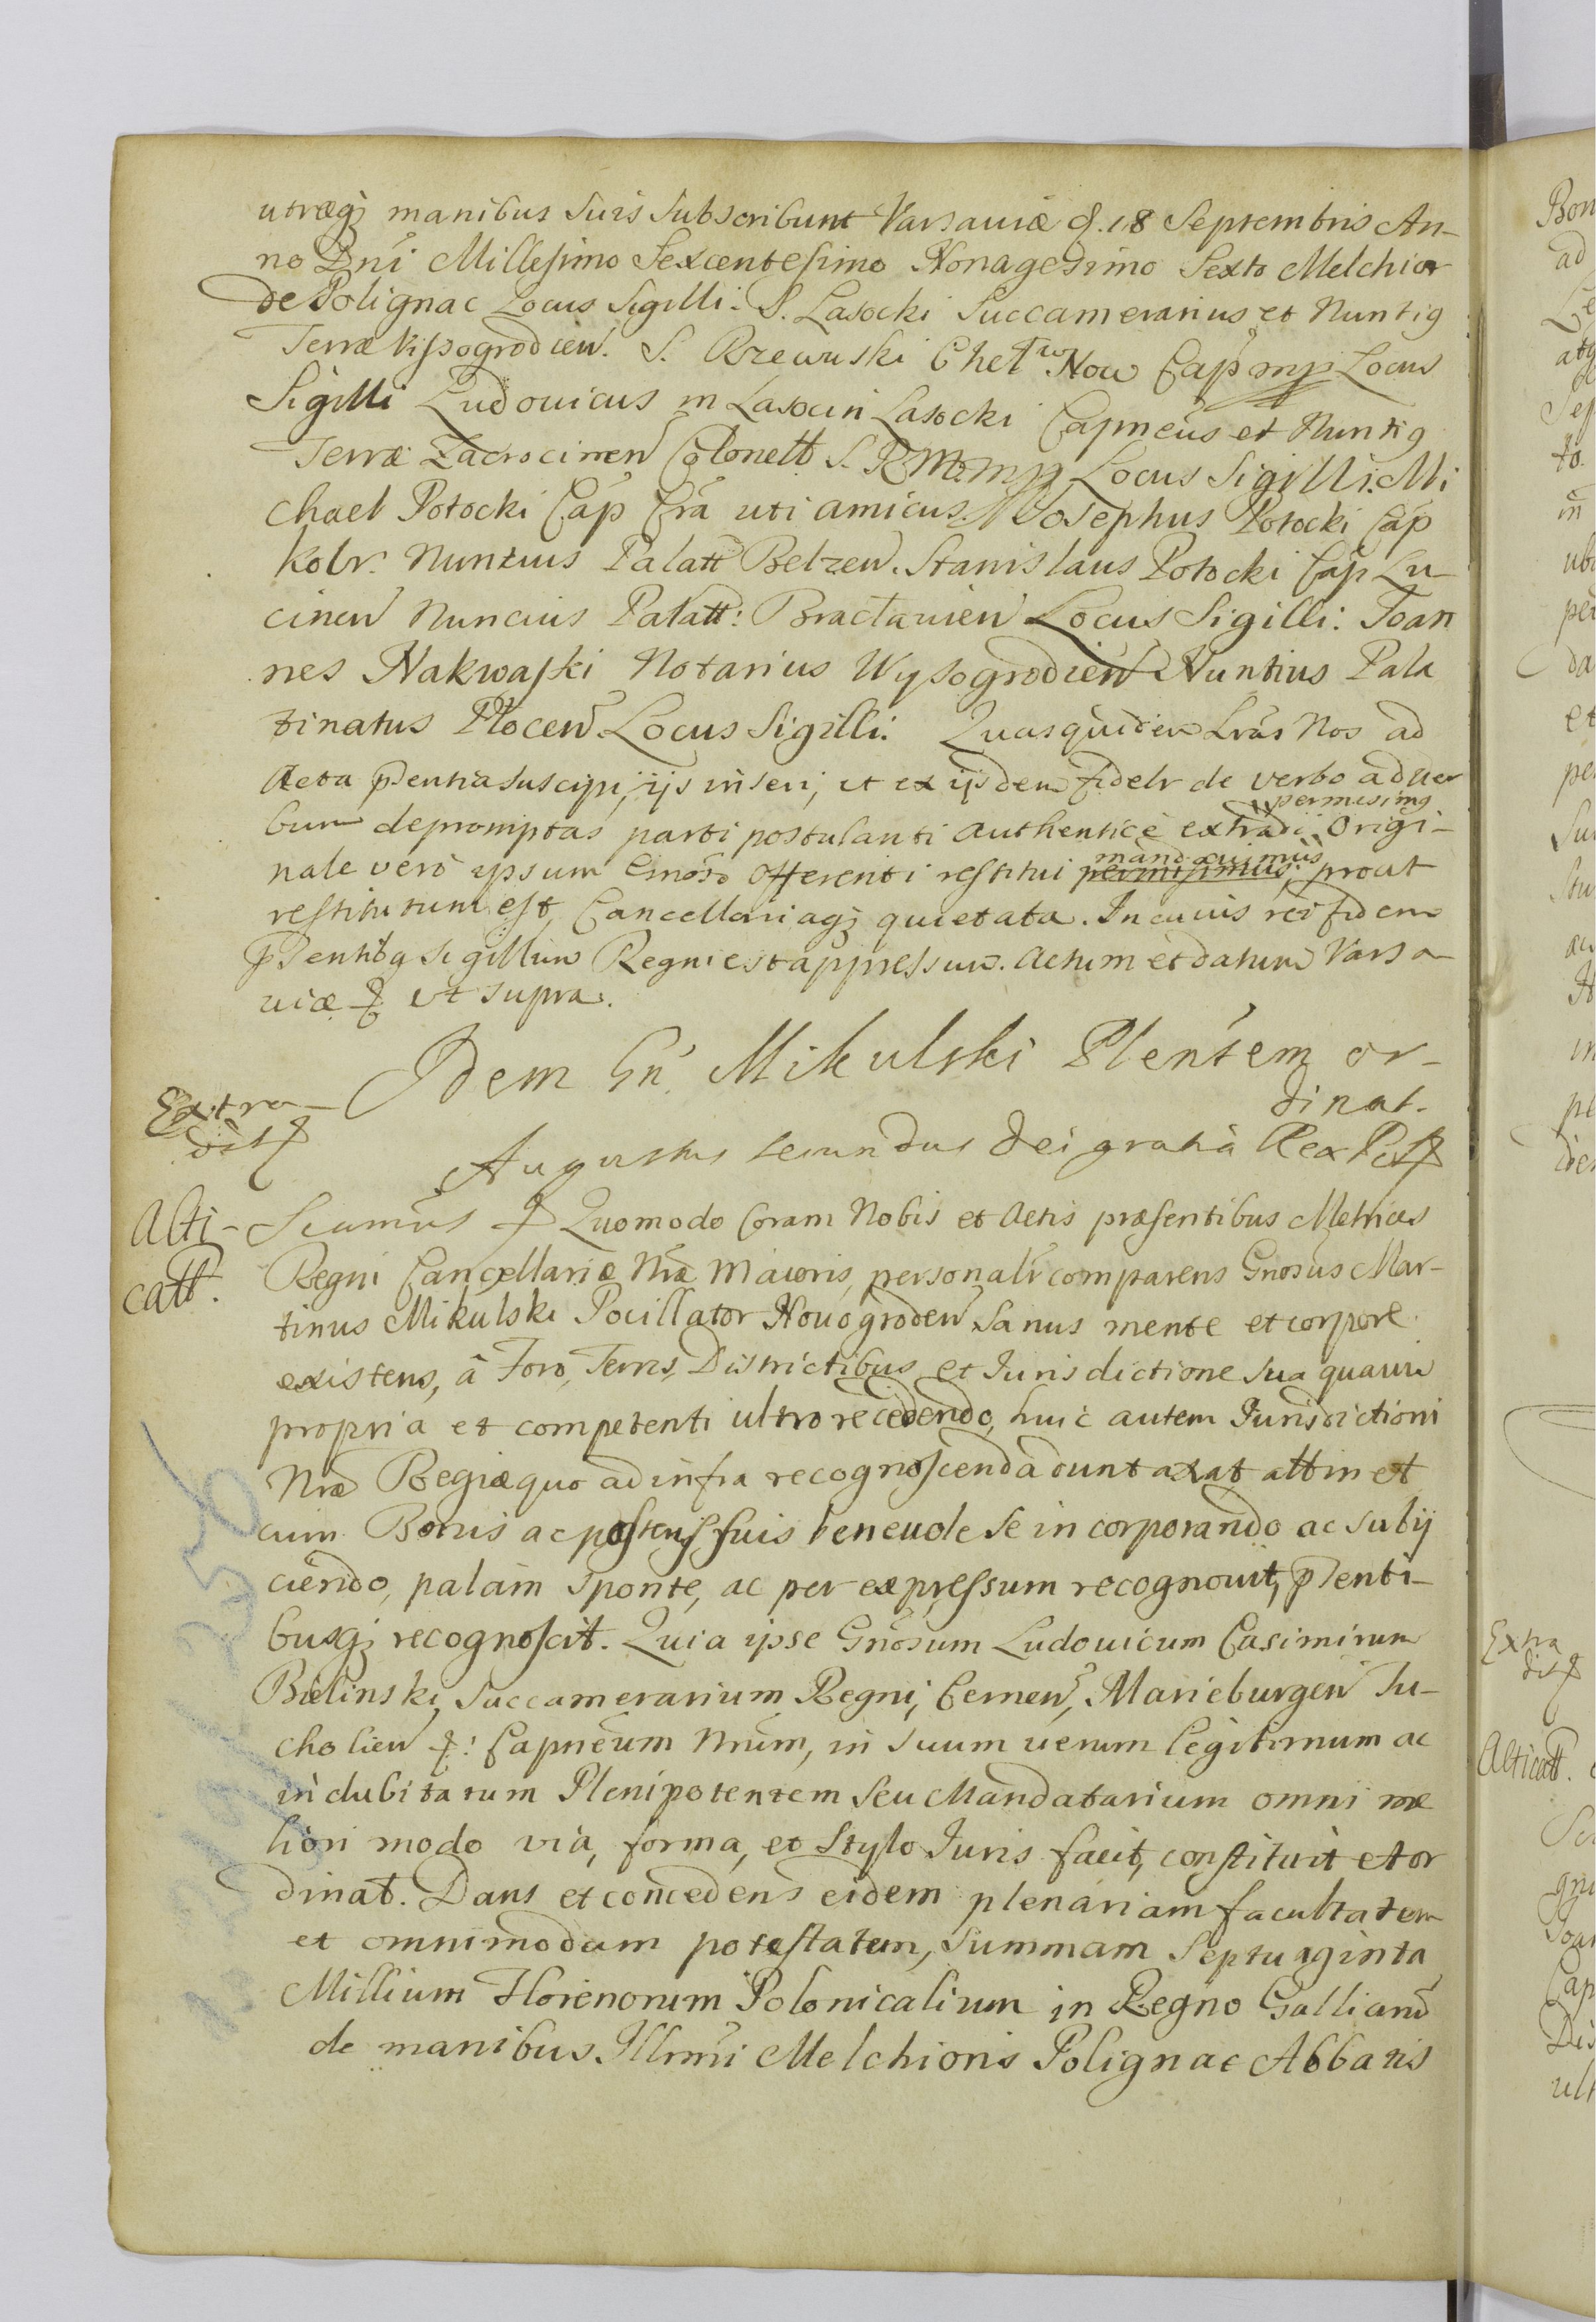 utræq₃ manibus suis subscribunt Varsauiæ d. 18 Septembris An-
no Dni Millesimo Sexcentesimo Nonagesimo Sexto Melchior
de Polignac Locus Sigilli. S. Lasocki Succamerarius et Nuntig
Terræ Vissogrodien. S. Rzewuski Chel Now Cap mp Locus
Sigilli Ludouicus in Lasocin Lasocki Capneus et Nuntig
Terræ Zacrocimen Colonell S. R M mp Locus Sigilli. Mi
chael Potocki Cap Cra uti amicus. Josephus Potocki Cap
Kolr. Nuntius Palatt Belzen. Stanislaus Potocki Cap Lu-
cinen Nuncius Palatt: Braclauien Locus Sigilli: Joan
nes Nakwaski Notarius Wysogrodien Nuntius Pala
tinatus Plocen. Locus Sigilli: Quasquidem Lras Nos ad
Acta pñtia suscipi, ijs inseri, et ex ijsdem fidelr de verbo ad ver
permisimg
bum depromptas parti postulanti authenticè extradi. Origi-
nale verò ipsum Gnoso Offerenti restitui permisimus, prout
mandauimus
restitutum est, Cancellariaq₃ quietata. In cuius rei fidem
pñtibg sigillum Regni est appressum. Actum et datum Varsa-
uiæ ut supra.
Idem Gn. Mikulski Plentem or-
dinat.
Extra-
dit
Augustus secundus Dei gratia Rex Pol
Alti-
catt.
Significamus Quomodo Coram Nobis et Actis præsentibus Metrices
Regni Cancellariæ Nræ Maioris, personalr comparens Gnosus Mar-
tinus Mikulski Pocillator Nouogroden Sanus mente et corpore
existens, â Foro, Terris, Districtibus et Jurisdictione sua quauis
propria et competenti ultro recedendo, huic autem Jurisdictioni
Nræ Regiæ quo ad infra recognoscenda duntaxat attinet
cum Bonis ac posteris suis beneuole se incorporando ac subij
ciendo, palàm sponte, ac per expressum recognouit, pñti-
busq₃ recognoscit. Quia ipse Gnosum Ludouicum Casimirum
Bielinski, Succamerarium Regni, Cernen, Marieburgen Tu-
cholien : Capneum Nrum, in suum uerum legitimum ac
indubitatum Plenipotentem seu Mandatarium omni me
liori modo viâ, forma, et Stylo Juris facit, constituit et or
dinat. Dans et concedens eidem plenariam facultatem
et omnimodam potestatem, Summam Septuaginta
Millium Florenorum Polonicalium in Regno Galliarũ
de manibus Illrmi Melchioris Polignac Abbatis